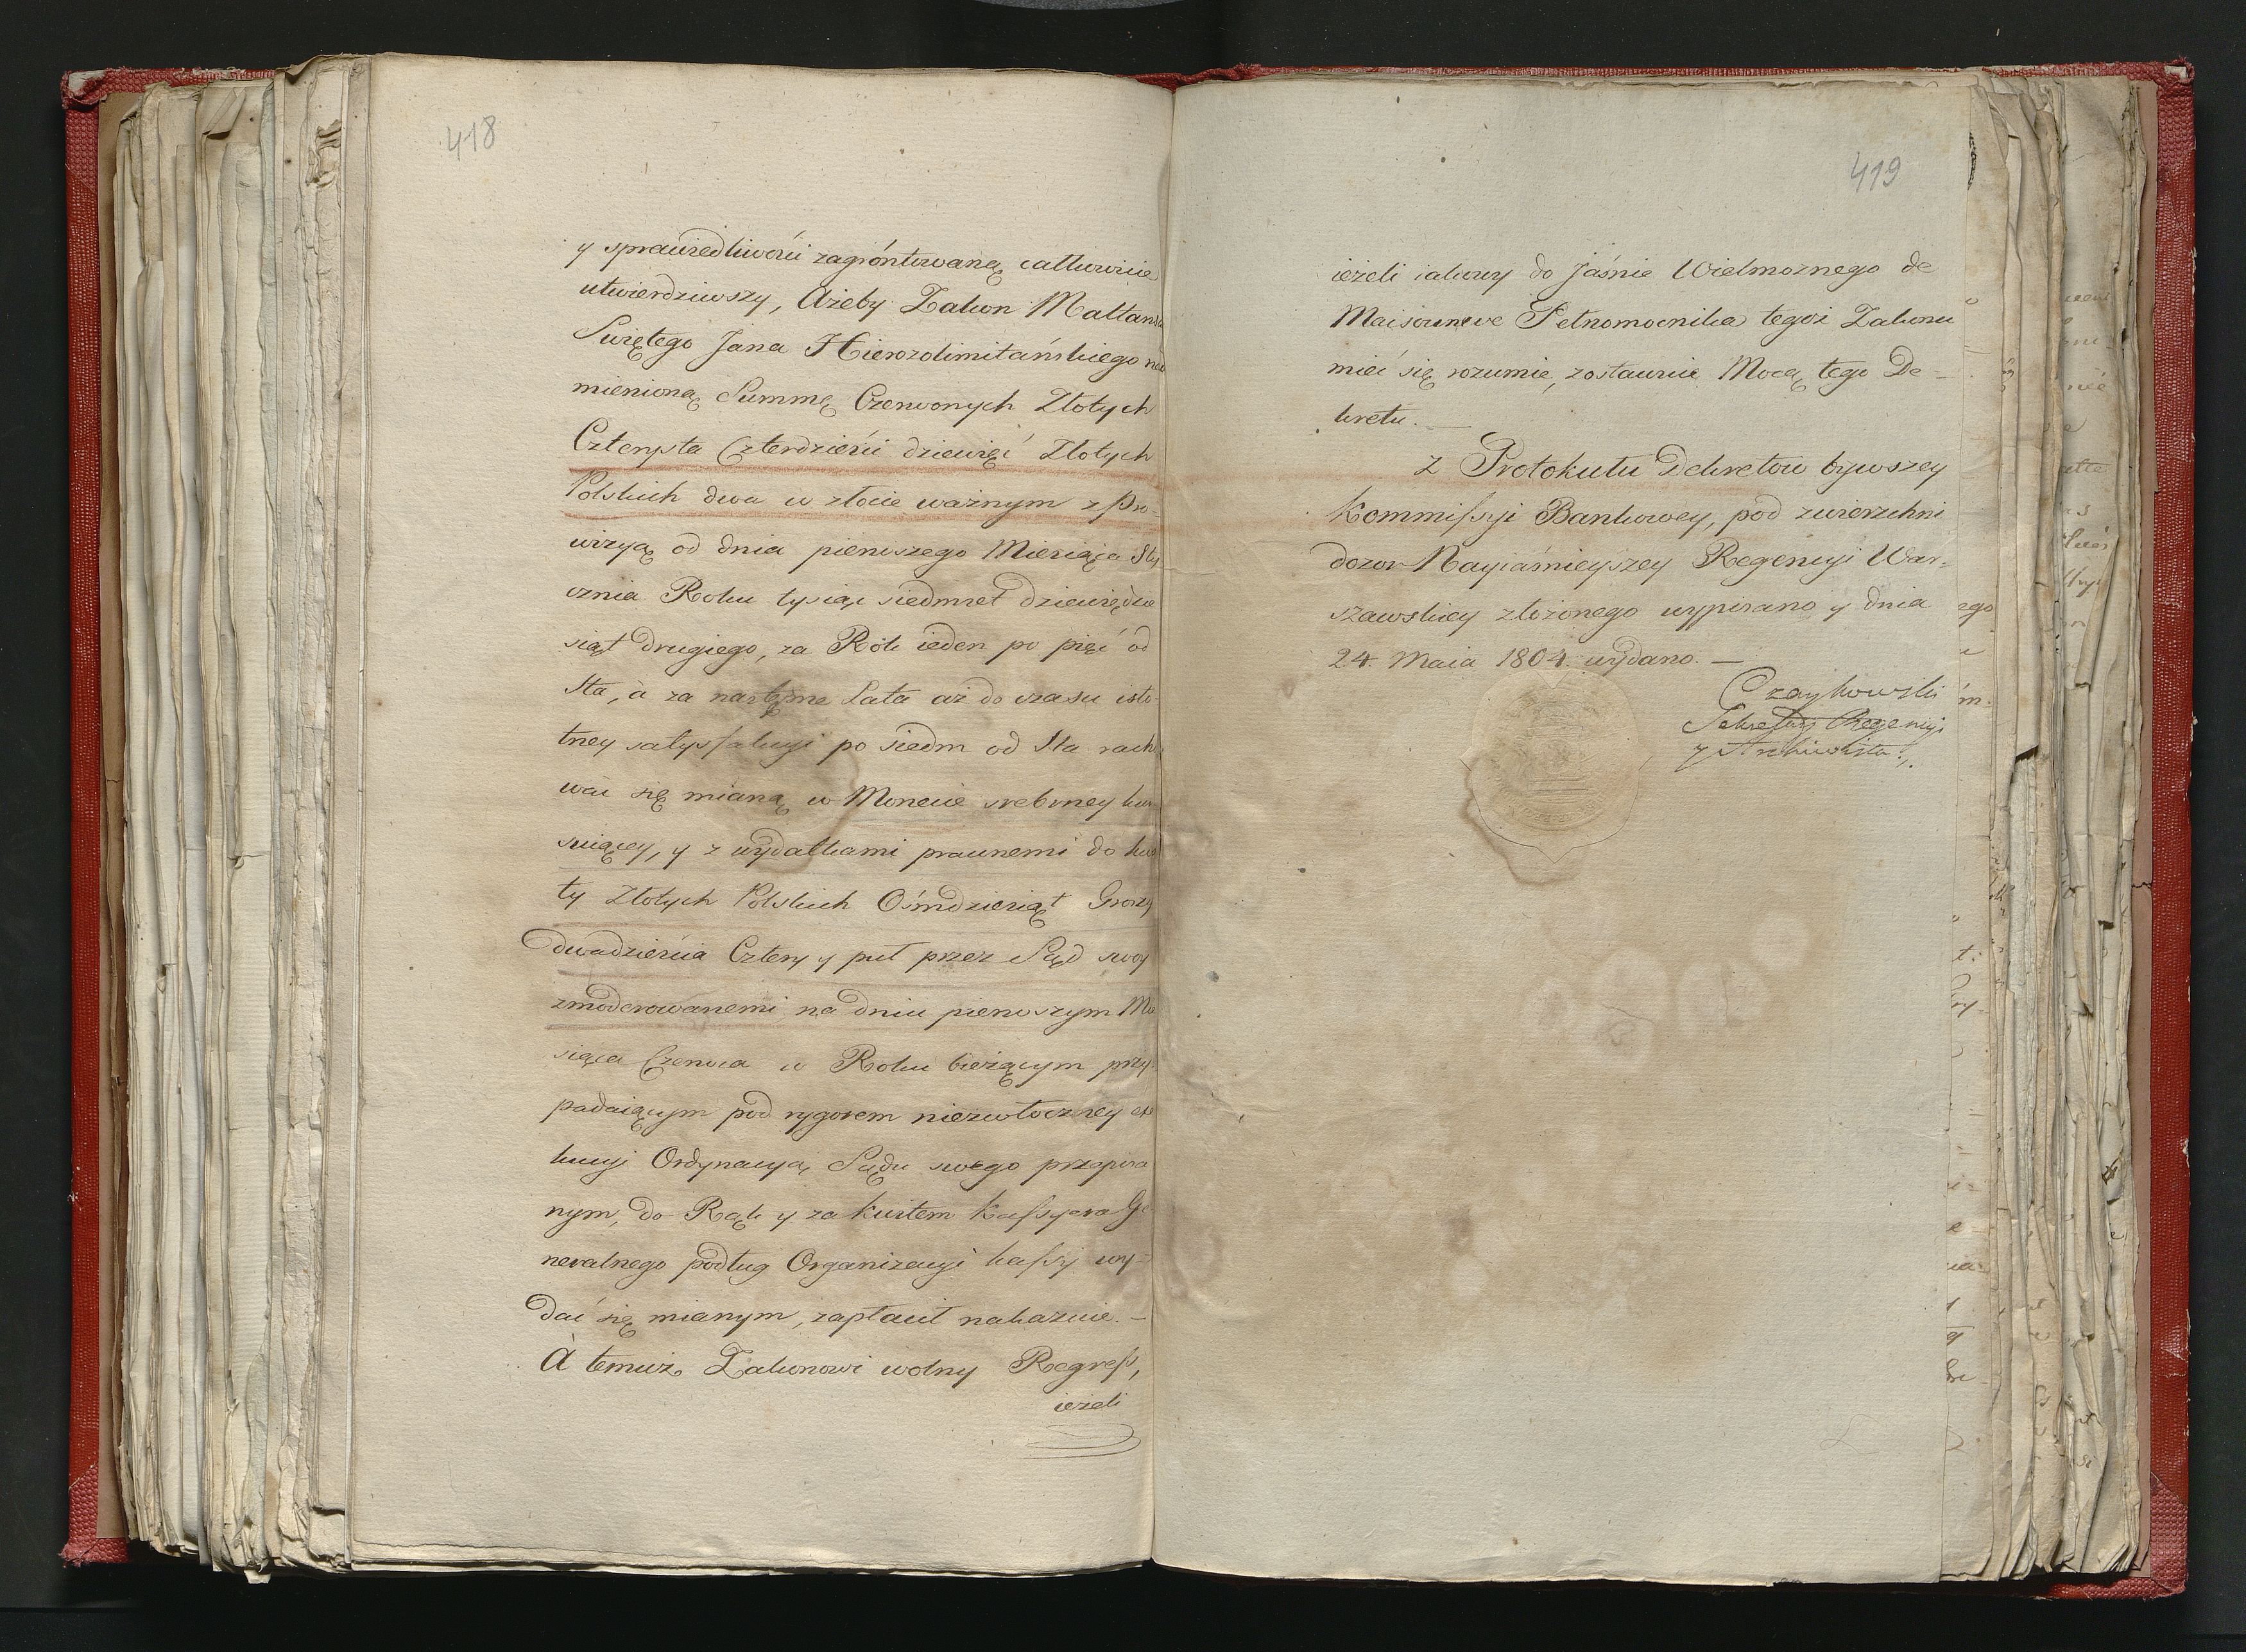 418
y sprawiedliwości zagróntowaną całkowicie
utwierdziwszy, Ażeby Zakon Maltański
Swiętego Jana Hierozolimitańskiego nad
mienioną Summę Czerwonych Złotych
Czterysta Czterdzieści dziewięć Złotych
Polskich dwa w złocie ważnym z Pro-
wizyą od dnia pierwszego Miesiąca Sty
cznia Roku tysiąc siedmset dziewiędzie
siąt drugiego, za Rok ieden po pięć od
Sta, à za następne Lata aż do czasu isto-
tney satysfakcyi po siedm od Sta racho
wać się mianą w Monecie srebrney kur
suiącey, y z wydatkami prawnemi do kwo
ty Złotych Polskich Ośmdziesiąt Groszy
dwadzieścia Cztery y puł przez Sąd swoy
zmoderowanemi na dniu pierwszym Mie
siąca Czerwca w Roku bieżącym przy-
padaiącym pod rygorem niezwłoczney exe
kucyi Ordynacyą Sądu swego przepisa
nym, do Rąk y za kwitem Kassyera Ge
neralnego podług Organizacyi kassy wy-
dać się mianym, zapłacił nakazuie. –
À temuż Zakonowi wolny Regress,
ieżeli
419
ieżeli iakowy do Jaśnie Wielmożnego de
Maisonneve Pełnomocnika tegoż Zakonu
mieć się rozumie, zostawuie Mocą tego De-
kretu. —
Z Protokułu Dekretow bywszey
Kommissyi Bankowey, pod zwierzchni
dozor Nayiaśnieyszey Regencyi War-
szawskiey złożonego wypisano y dnia
24. Maia 1804. wydano. —
Czaykowski
Sekretarz Regencyi
y Archiwista